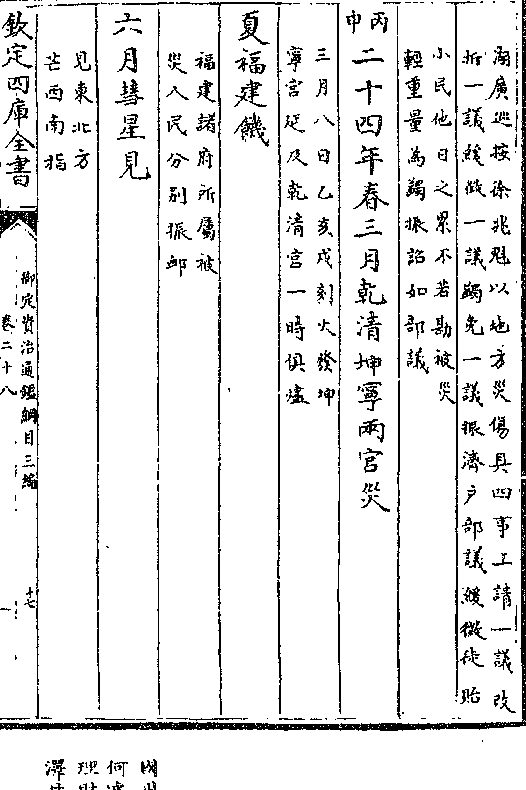 湖廣巡按徐兆魁以地方災傷具四事上請一議改
折一議緩徵一議蠲免一議振濟户部議緩徵徒貽
小民他日之累不若勘被災
輕重量為蠲振詔如部議
丙申
二十四年春三月乾清坤寧兩宮災
三月八日乙亥戌刻火發坤
寧宮延及乾清宮一時俱燼
夏福建饑
福建諸府所屬被
災人民分别振䘏
六月彗星見
見東北方
芒西南指
欽定四庫全書
御定資治通鑑綱目三編
卷二十八
十七